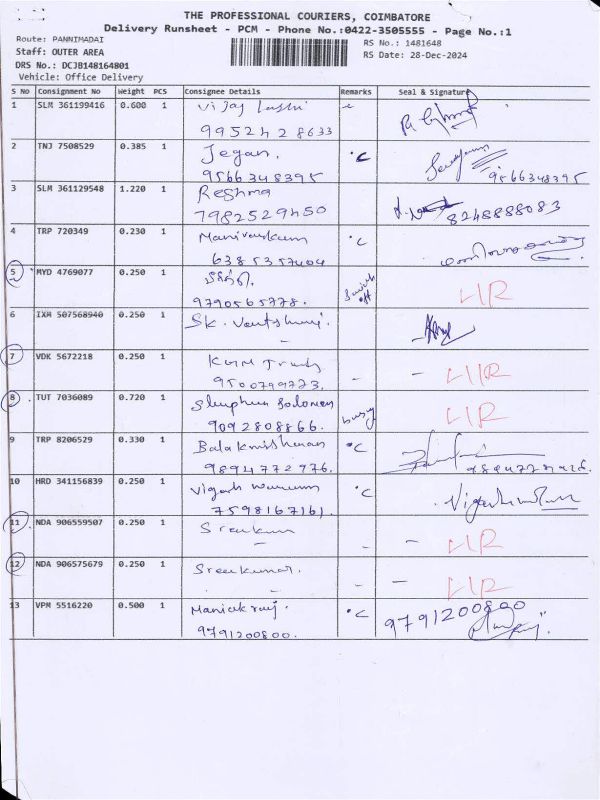 THE PROFESSIONAL COURIERS, COIMBATORE
Delivery Runsheet - PCM - Phone No.:0422-3505555 - Page No.:1
Route: PANNIMADAI
RS No.: 1481648
Staff: OUTER AREA
RS Date: 28-Dec-2024
DRS No.: DCJB148164801
Vehicle: Office Delivery
S No Consignment No Weight PCS Consignee Details Remarks Seal & Signature
1 SLM 361199416 0.600 1 Vijay
995242 8633
2 TNJ 7508529 0.385 1 Jegan. °C
9566348395 9566348395
3 SLM 361129548 1.220 1 Reshma
7982529450 8248888083
4 TRP 720349 0.230 1 Manivankum °C
6385357404
5 MYD 4769077 0.250 1
9790565778. Switch off
6 IXM 507568940 0.250 1 SK.
7 VDK 5672218 0.250 1
9500799773. -
8 TUT 7036089 0.720 1 Solomon
9092808866. busy
9 TRP 8206529 0.330 1 Balakrishnan °C
9894772976.
10 HRD 341156839 0.250 1 Vignesh °C
7598167161.
11 NDA 906559507 0.250 1 Sreekum
12 NDA 906575679 0.250 1 Sreekumar.
13 VPM 5516220 0.500 1 Manickraj. °C 9791200800
9791200800.